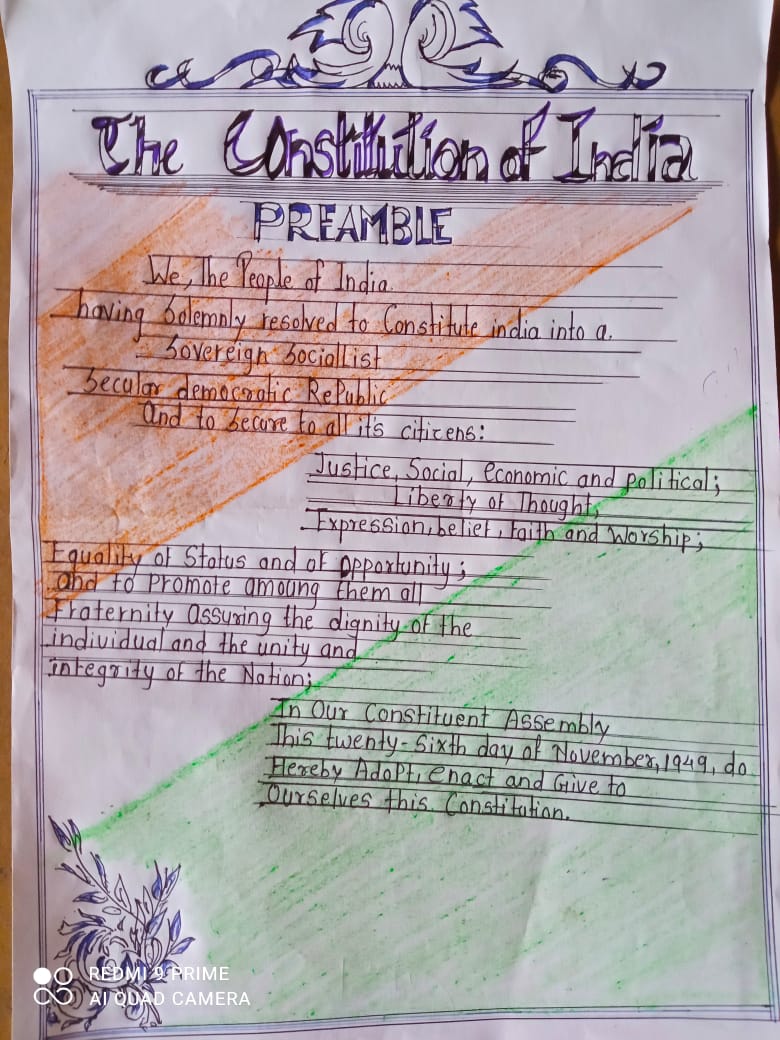 The Constitution of India
PREAMBLE
We, The People of India.
having Solemnly resolved to Constitute india into a.
Sovereign Sociallist
Secular democratic Republic
And to secure to all it's citizens:
Justice, Social, economic and political;
Liberty of Thought,
Expression, belief, faith and Worship;
Equality of Status and of Opportunity;
and to Promote amoung them all
Fraternity assuring the dignity of the
individual and the unity and
integrity of the Nation;
In Our Constituent Assembly
This twenty-Sixth day of November, 1949, do
Hereby Adopt, enact and Give to
Ourselves this Constitation.
REDMI 9 PRIME
AI QUAD CAMERA